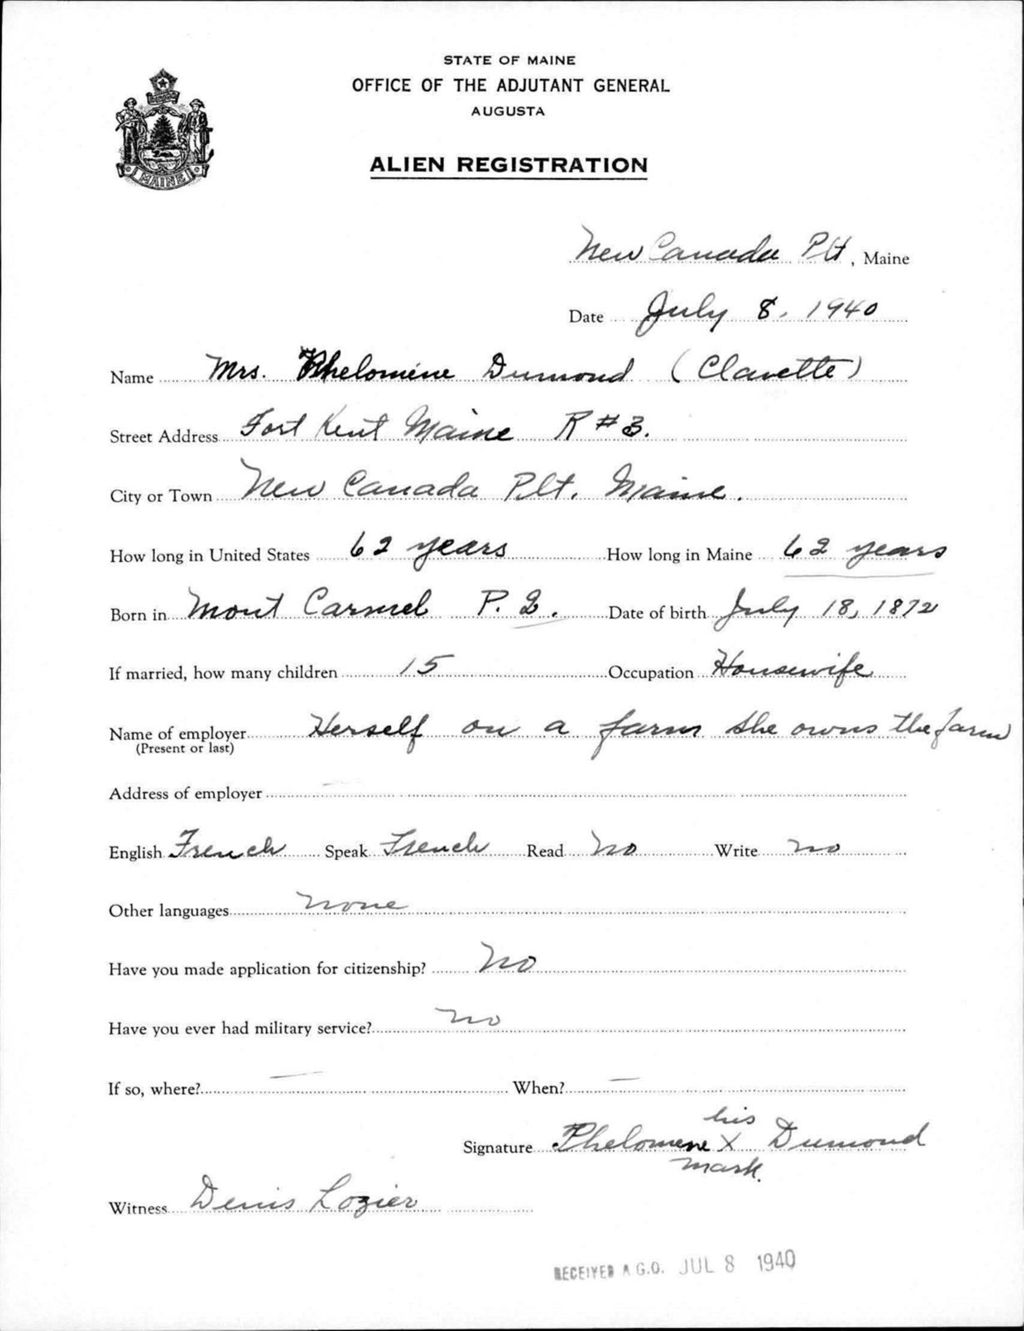 STATE OF MAINE
OFFICE OF THE ADJUTANT GENERAL
AUGUSTA
ALIEN REGISTRATION
MAINE
New Canada Plt, Maine
Date July 8, 1940
Name Mrs. Phelomene Dumond (Clavette)
Street Address Fort Kent Maine R#3.
City or Town New Canada Plt. Maine.
How long in United States 62 years How long in Maine 62 years
Born in Mont Carmel P. Q. Date of birth July 18, 1872
If married, how many children 15 Occupation Housewife
Name of employer Herself on a farm she owns the farm
(Present or last)
Address of employer
English French Speak French Read No Write no
Other languages none
Have you made application for citizenship? No
Have you ever had military service? no
If so, where? — When? —
his
Signature Phelomene X Dumond
mark.
Witness Denis Lozier
RECEIVED A.G.O. JUL 8 1940